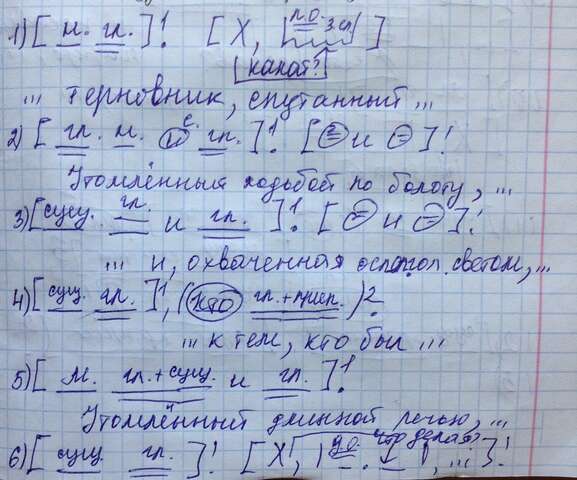 1) [ м. гл. ]! [ Х, | п.о. з.сл. | ]
какой?
... терновник, спутанный ...
2) [ гл. м. и с. гл. ]! [ = и = ]!
Утомлённый ходьбой по болоту, ...
3) [ сущ. гл. и гл. ]! [ = и = ]!
... и, охваченная светом, ...
4) [ сущ. гл. ]1, ( кто гл.+прич. )2.
... к тем, кто был ...
5) [ м. гл.+сущ. и гл. ]1!
Утомлённый длинной речью, ...
6) [ сущ. гл. ]! [ Х, | д.о. что делая? |, ... ]!